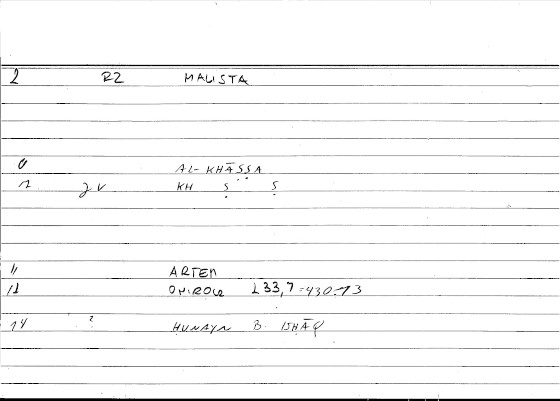 2 RZ MALISTA
0 AL-KHĀṢṢA
1 jv KH Ṣ Ṣ
11 ARTEM
11 ONIROCR 233,7=430.13
14 ? HUNAYN B. ISḤĀQ